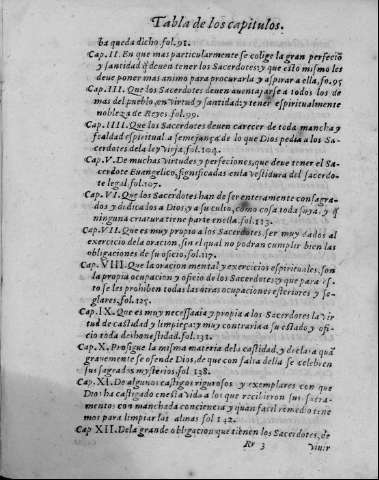 Tabla de los capitulos.
ba queda dicho. fol. 91.
Cap. II. En que mas particularmente se colige la gran perfeciõ
y santidad q̃ deuen tener los Sacerdotes: y que esto mismo les
deue poner mas animo para procurarla y aspirar a ella, fo. 95
Cap. III. Que los Sacerdotes deuen auentajarse a todos los de
mas del pueblo, en virtud y santidad: y tener espiritualmente
nobleza de Reyes. fol. 99.
Cap. IIII. Que los Sacerdotes deuen carecer de toda mancha y
fealdad espiritual a semejança de lo que Dios pedia a los Sa-
cerdotes de la ley vieja. fol. 104.
Cap. V. De muchas virtudes y perfeciones, que deue tener el Sa-
cerdote Euangelico, significadas en la vestidura del sacerdo-
te legal, fol. 107.
Cap. VI. Que los Sacerdotes han de ser enteramente consagra-
dos y dedicalos a Dios, y a su culto, como cosa toda suya, y q̃
ninguna criatura tiene parte en ella. fol. 113.
Cap. VII. Que es muy propio a los Sacerdotes, ser muy dados al
exercicio de la oracion, sin el qual no podran cumplir bien las
obligaciones de su oficio. fol. 117.
Cap. VIII. Que la oracion mental y exercicios espirituales, son
la propia ocupacion y oficio de los Sacerdotes: y que para es-
to se les prohiben todas las otras ocupaciones esteriores y se-
glares. fol. 125.
Cap. IX. Que es muy necessaria y propia a los Sacerdotes la vir
tud de castidad y limpieça: y muy contraria a su estado y ofi-
cio toda deshonestidad. fol. 132.
Cap. X. Prosigue la misma materia de la castidad, y declara quã
grauemente se ofende Dios, de que con falta della se celebren
sus sagrados mysterios. fol. 138.
Cap. XI. De algunos castigos rigurosos y exemplares con que
Dios ha castigado en esta vida a los que recibieron sus sacra-
mentos con manchada conciencia y quan facil remedio tene-
mos para limpiar las almas fol 142.
Cap XII. De la grande obligacion que tienen los Sacerdotes, de
Rr 3 viuir